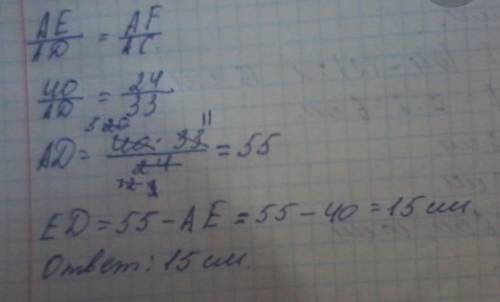 AE/AD = AF/AC.
40/AD = 24/33
AD = 40·33/24 = 55
ED = 55 - AE = 55 - 40 = 15 см.
Ответ: 15 см.